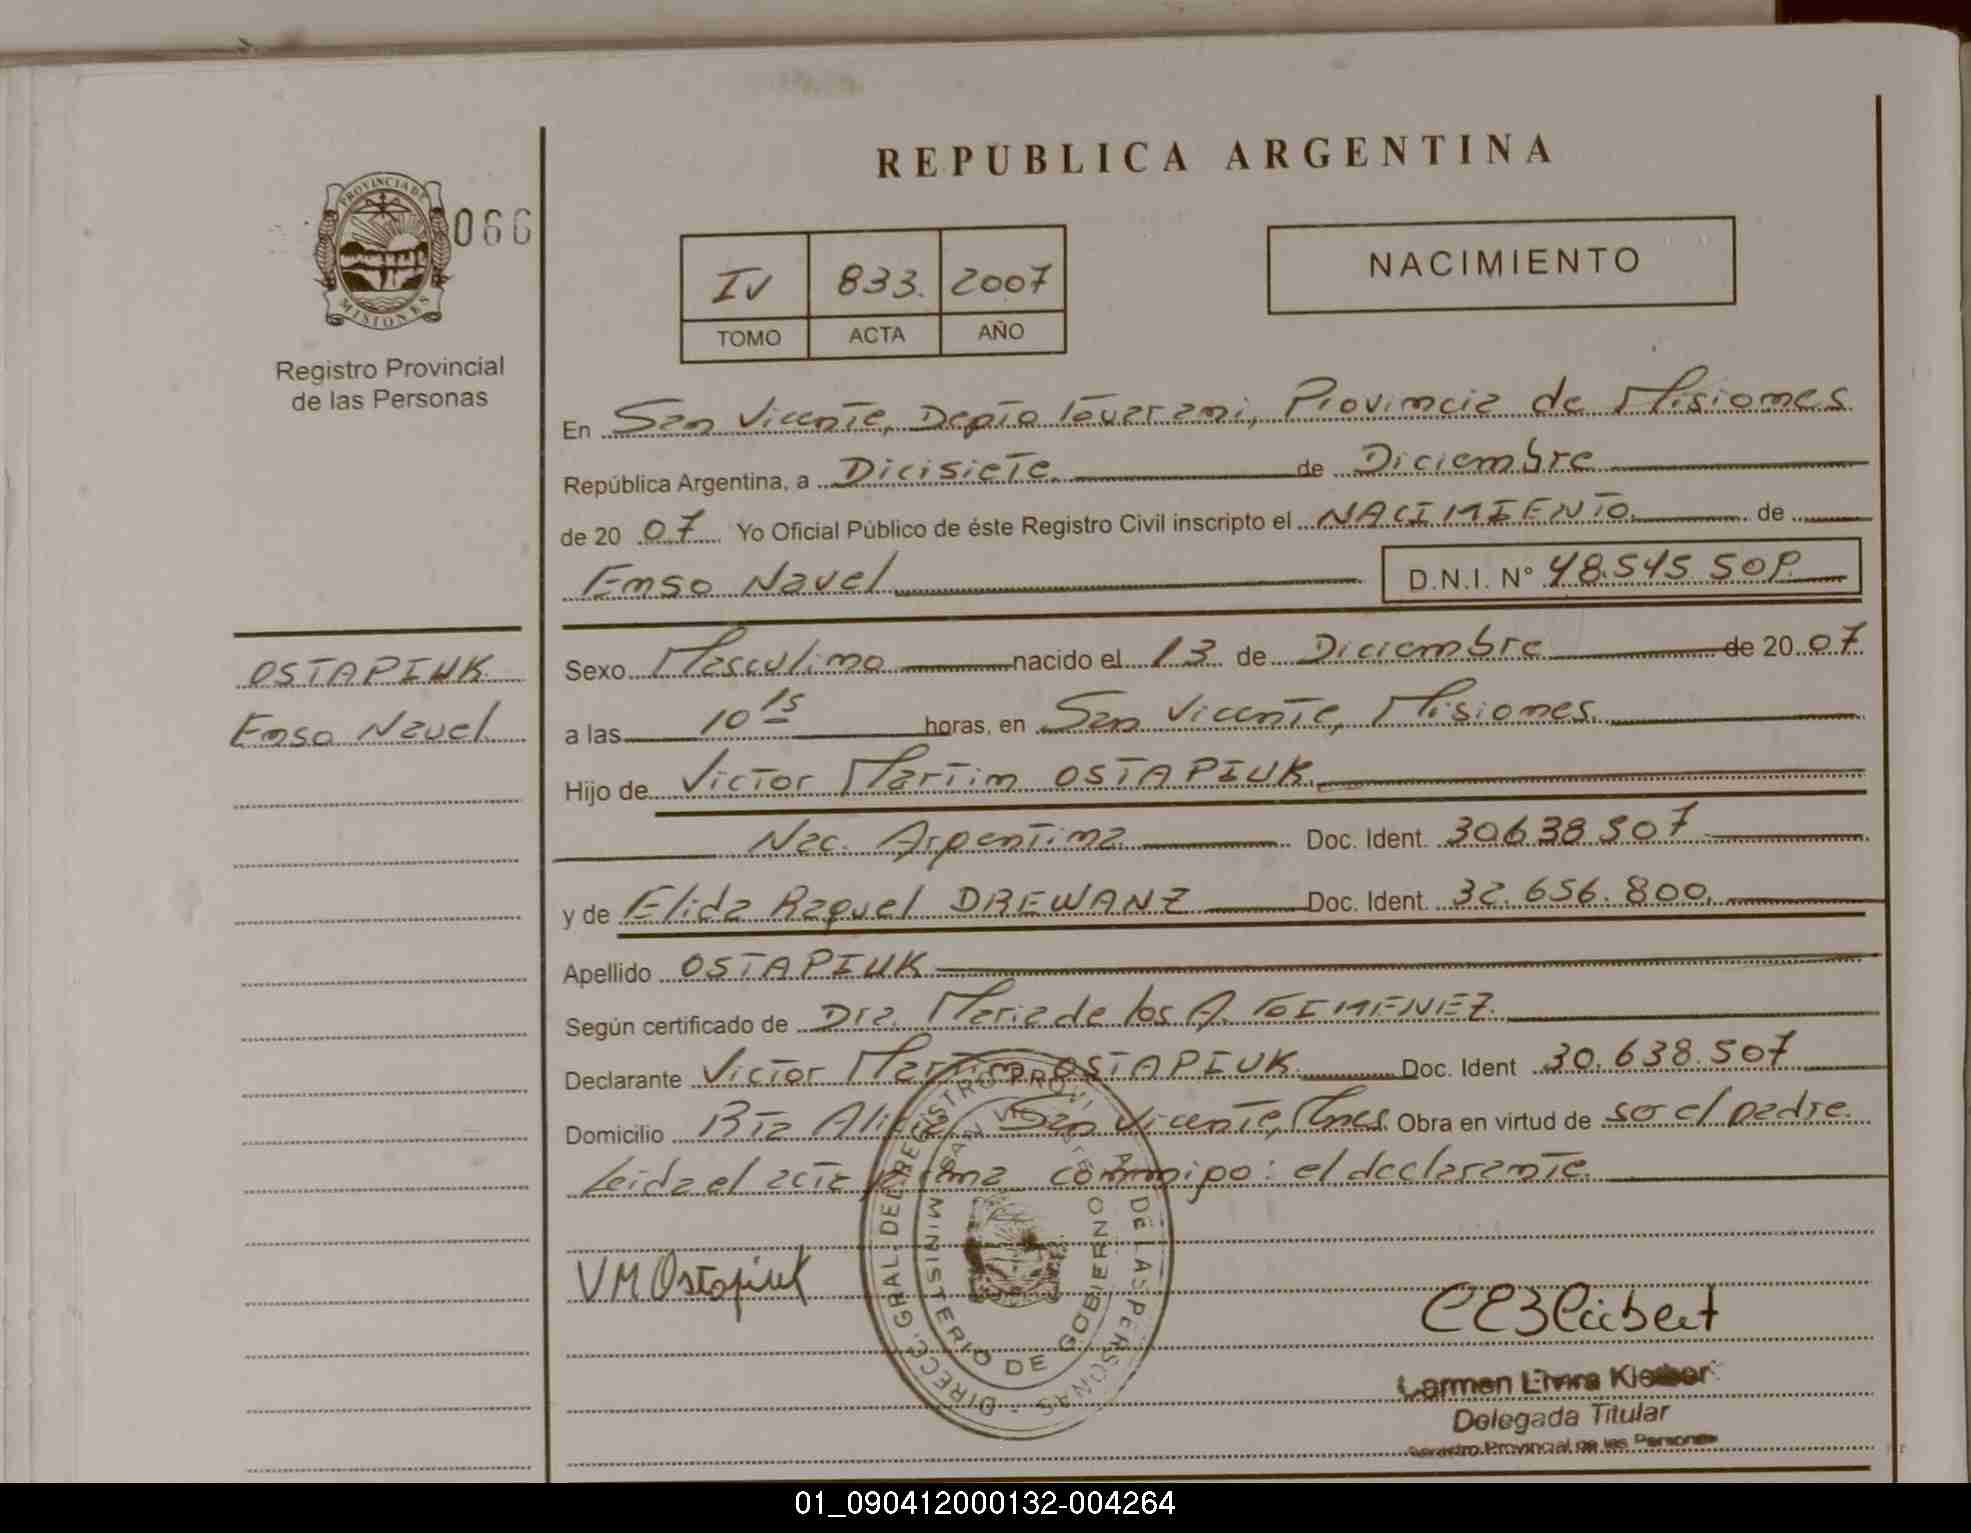 REPUBLICA ARGENTINA
PROVINCIA DE
MISIONES
066
Registro Provincial
de las Personas
IV 833. 2007
TOMO ACTA AÑO
NACIMIENTO
En San Vicente, Depto Guarani, Provincia de Misiones
República Argentina, a Dicisiete de Diciembre
de 20 07 Yo Oficial Público de éste Registro Civil inscripto el NACIMIENTO de
Enso Nauel D.N.I. N° 48.545.509
OSTAPIUK
Enso Nauel
Sexo Masculino nacido el 13 de Diciembre de 20 07
a las 10 15 horas, en San Vicente, Misiones
Hijo de Victor Martin OSTAPIUK
Nac. Argentina Doc. Ident. 30638507
y de Elida Raquel DREWANZ Doc. Ident. 32.656.800
Apellido OSTAPIUK
Según certificado de Dra. Maria de los A. GIMENEZ
Declarante Victor Martin OSTAPIUK Doc. Ident 30.638.507
Domicilio San Vicente, Mnes. Obra en virtud de ser el padre
Leida el acta firma conmigo: el declarante.
VM Ostapiuk
DIRECC. GRAL. DEL REGISTRO PROVI DE LAS PERSONAS
MINISTERIO DE GOBIERNO
SAN VICENTE
Carmen
Delegada Titular
Registro Provincial de las Personas
01_090412000132-004264